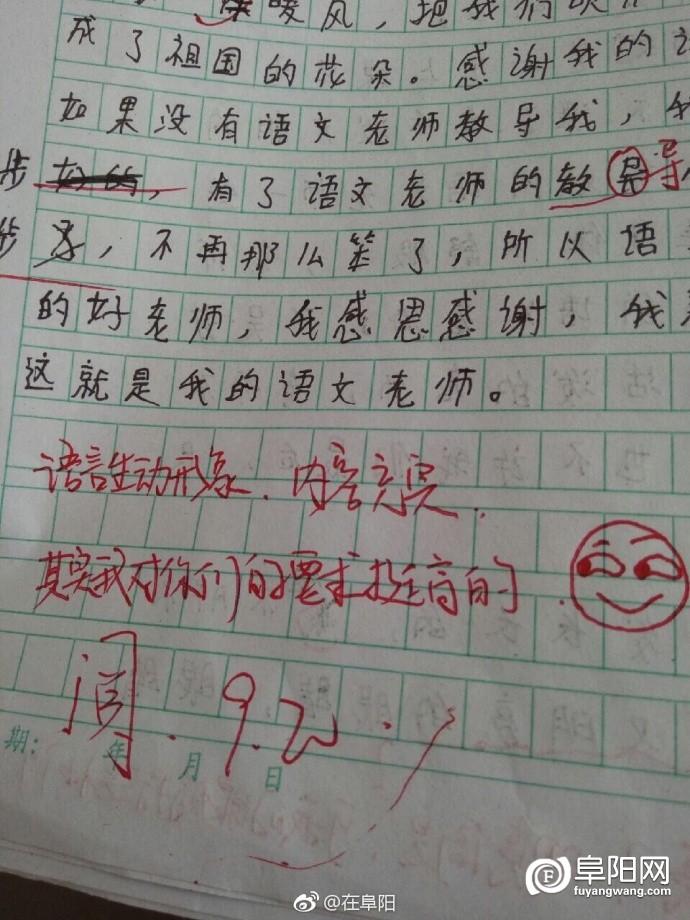 暖风，把我们吹
成了祖国的花朵。感谢我的
如果没有语文老师教导我，我
步 好的，有了语文老师的教导 导
步，不再那么笨了，所以语
的好老师，我感恩感谢，我
这就是我的语文老师。
语言生动形象．内容充实．
其实我对你们的要求挺高的．
阅．9.20
期： 年 月 日
@在阜阳
阜阳网
fuyangwang.com